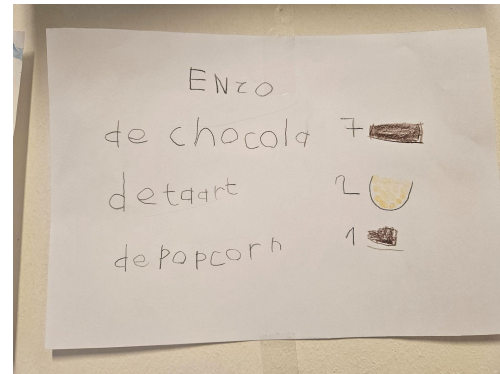 ENzO
de chocola 7
detaart 2
dePOPcorn 1